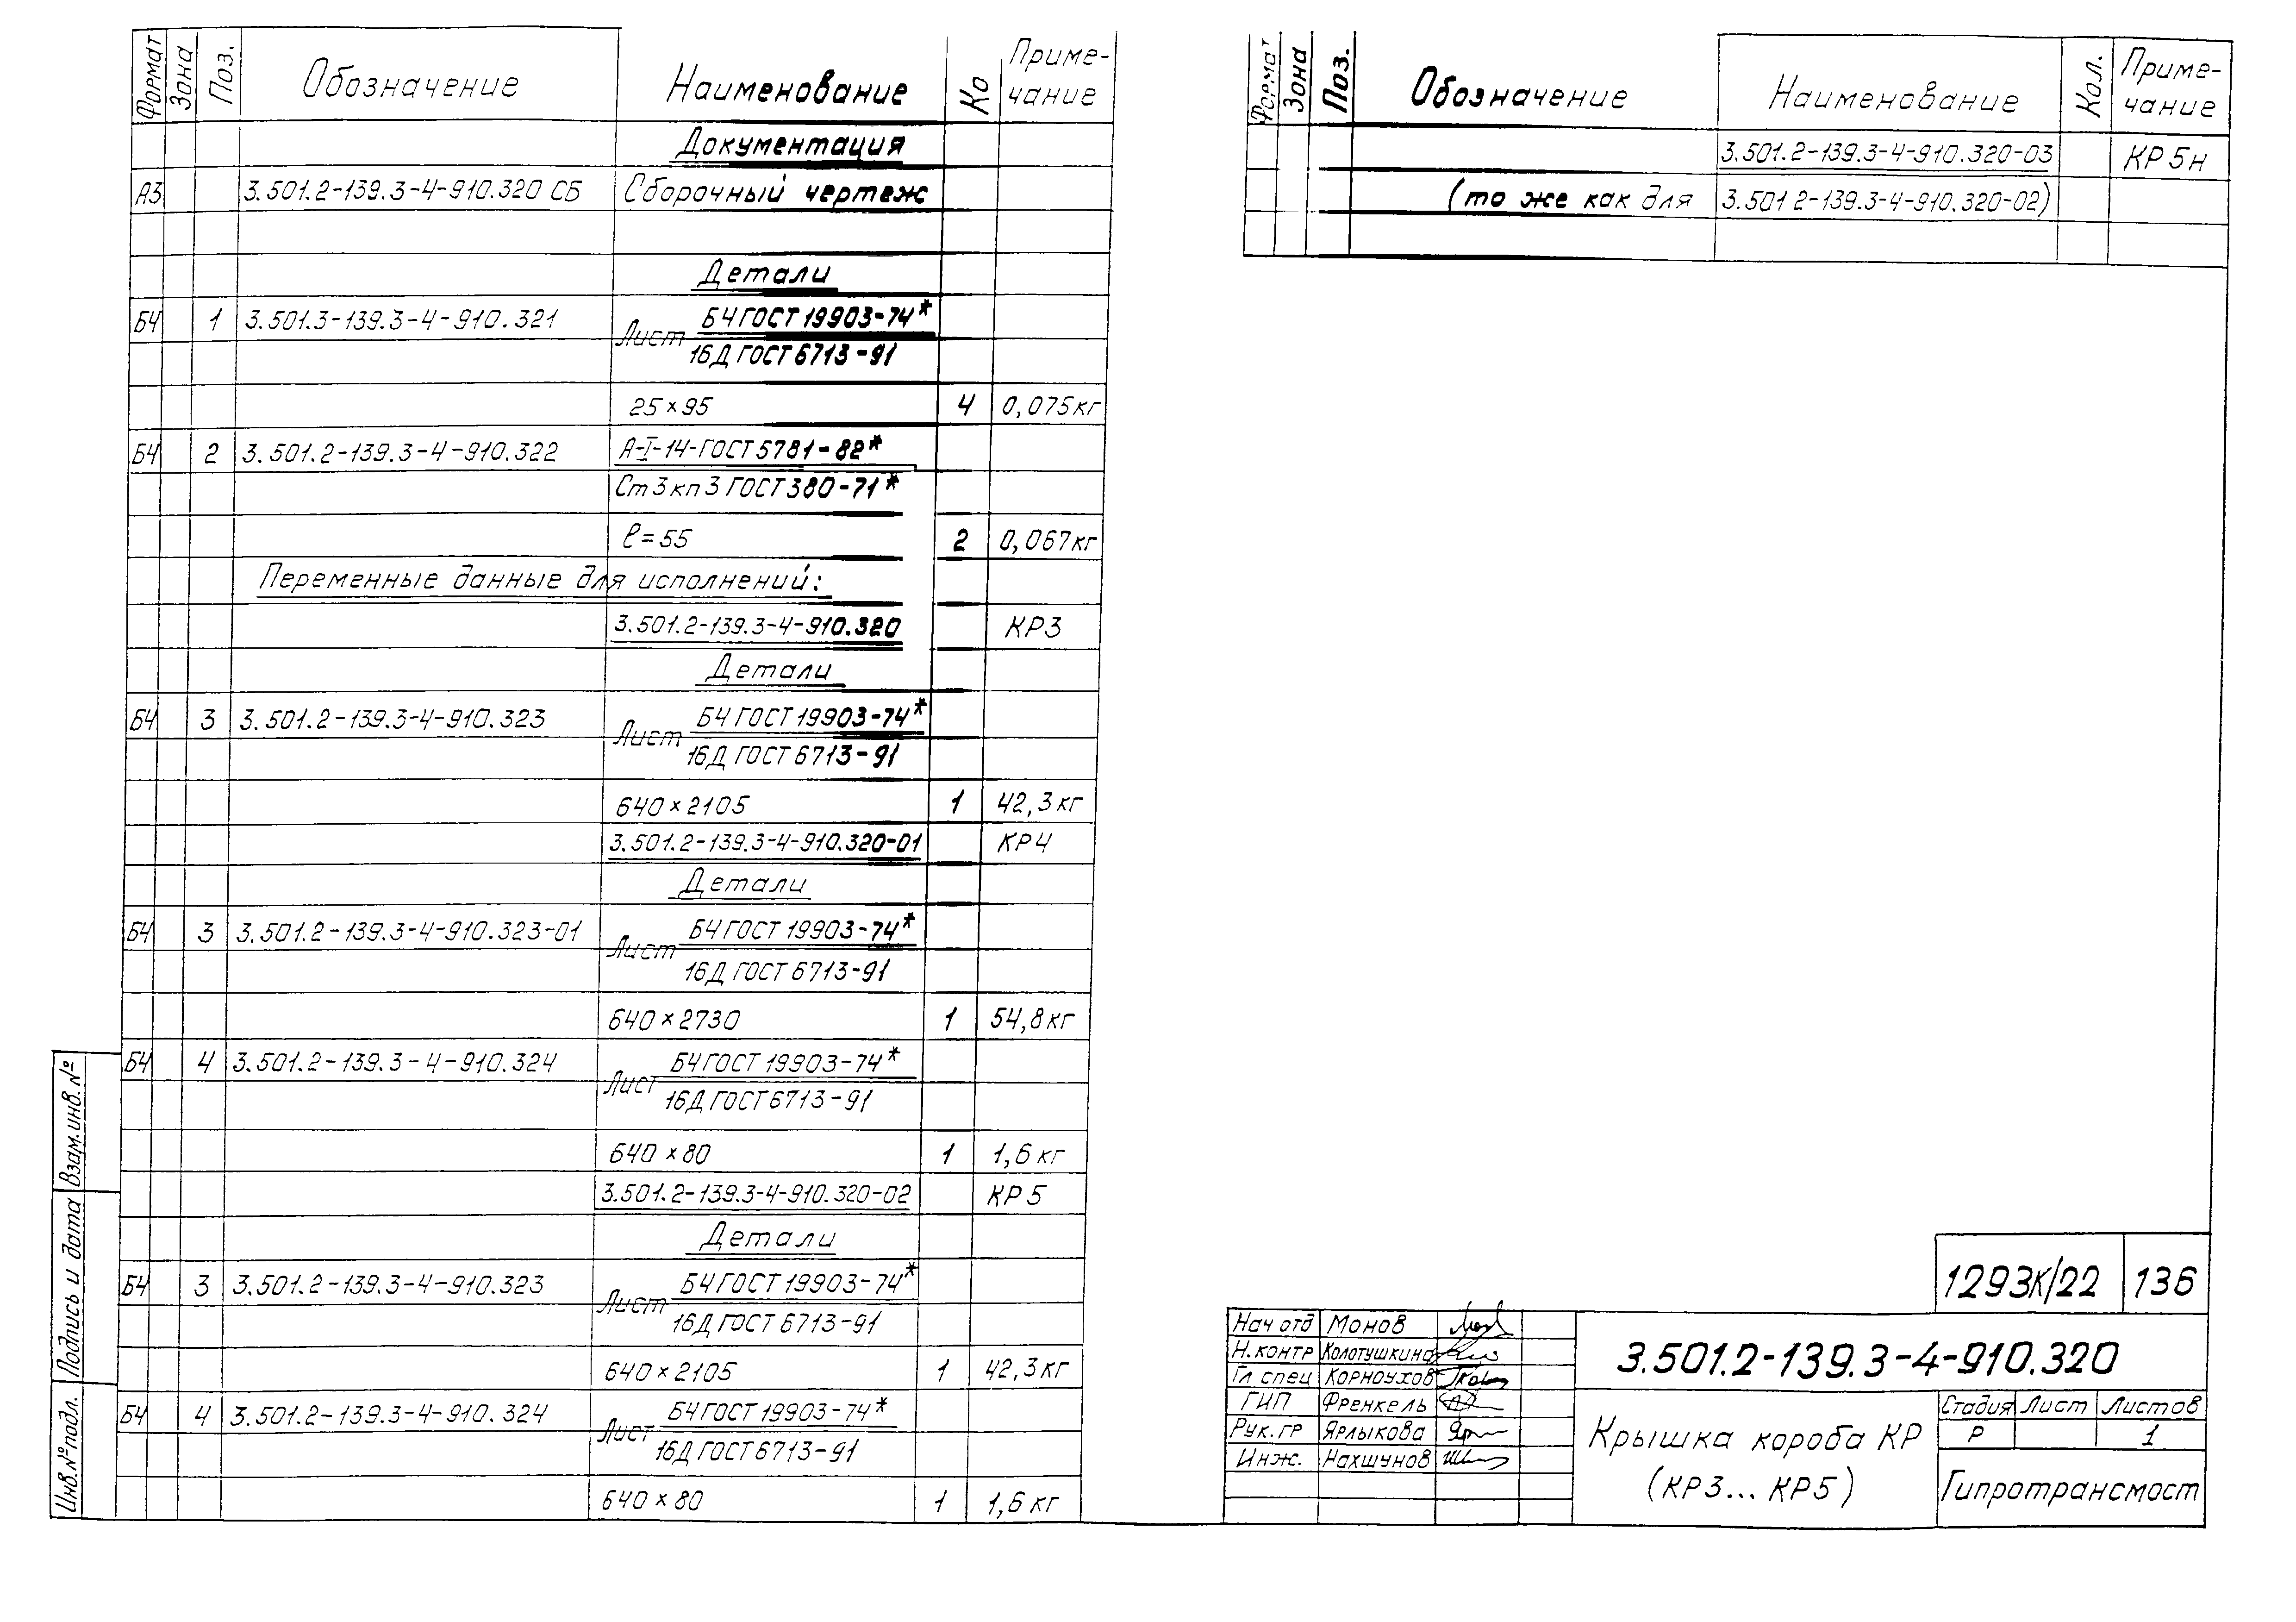 Формат Зона Поз. Обозначение Наименование Ко Приме-
чание
Документация
А3 3.501.2-139.3-4-910.320 СБ Сборочный чертеж
Детали
Б4 1 3.501.3-139.3-4-910.321 Лист Б4 ГОСТ 19903-74*
16Д ГОСТ 6713-91
25×95 4 0,075кг
Б4 2 3.501.2-139.3-4-910.322 А-I-14-ГОСТ 5781-82*
Ст3кп3 ГОСТ 380-71*
ℓ=55 2 0,067кг
Переменные данные для исполнений:
3.501.2-139.3-4-910.320 КР3
Детали
Б4 3 3.501.2-139.3-4-910.323 Лист Б4 ГОСТ 19903-74*
16Д ГОСТ 6713-91
640×2105 1 42,3кг
3.501.2-139.3-4-910.320-01 КР4
Детали
Б4 3 3.501.2-139.3-4-910.323-01 Лист Б4 ГОСТ 19903-74*
16Д ГОСТ 6713-91
640×2730 1 54,8кг
Б4 4 3.501.2-139.3-4-910.324 Лист Б4 ГОСТ 19903-74*
16Д ГОСТ 6713-91
640×80 1 1,6кг
3.501.2-139.3-4-910.320-02 КР5
Детали
Б4 3 3.501.2-139.3-4-910.323 Лист Б4 ГОСТ 19903-74*
16Д ГОСТ 6713-91
640×2105 1 42,3кг
Б4 4 3.501.2-139.3-4-910.324 Лист Б4 ГОСТ 19903-74*
16Д ГОСТ 6713-91
640×80 1 1,6кг
Инв.№подл. Подпись и дата Взам.инв.№
Формат Зона Поз. Обозначение Наименование Кол. Приме-
чание
3.501.2-139.3-4-910.320-03 КР5н
(то же как для 3.501 2-139.3-4-910.320-02)
1293К/22 136
Нач отд Монов
Н.контр Колотушкина
Гл спец Корноухов
ГИП Френкель
Рук.гр Ярлыкова
Инж. Нахшунов
3.501.2-139.3-4-910.320
Крышка короба КР
(КР3... КР5)
Стадия Лист Листов
Р 1
Гипротрансмост